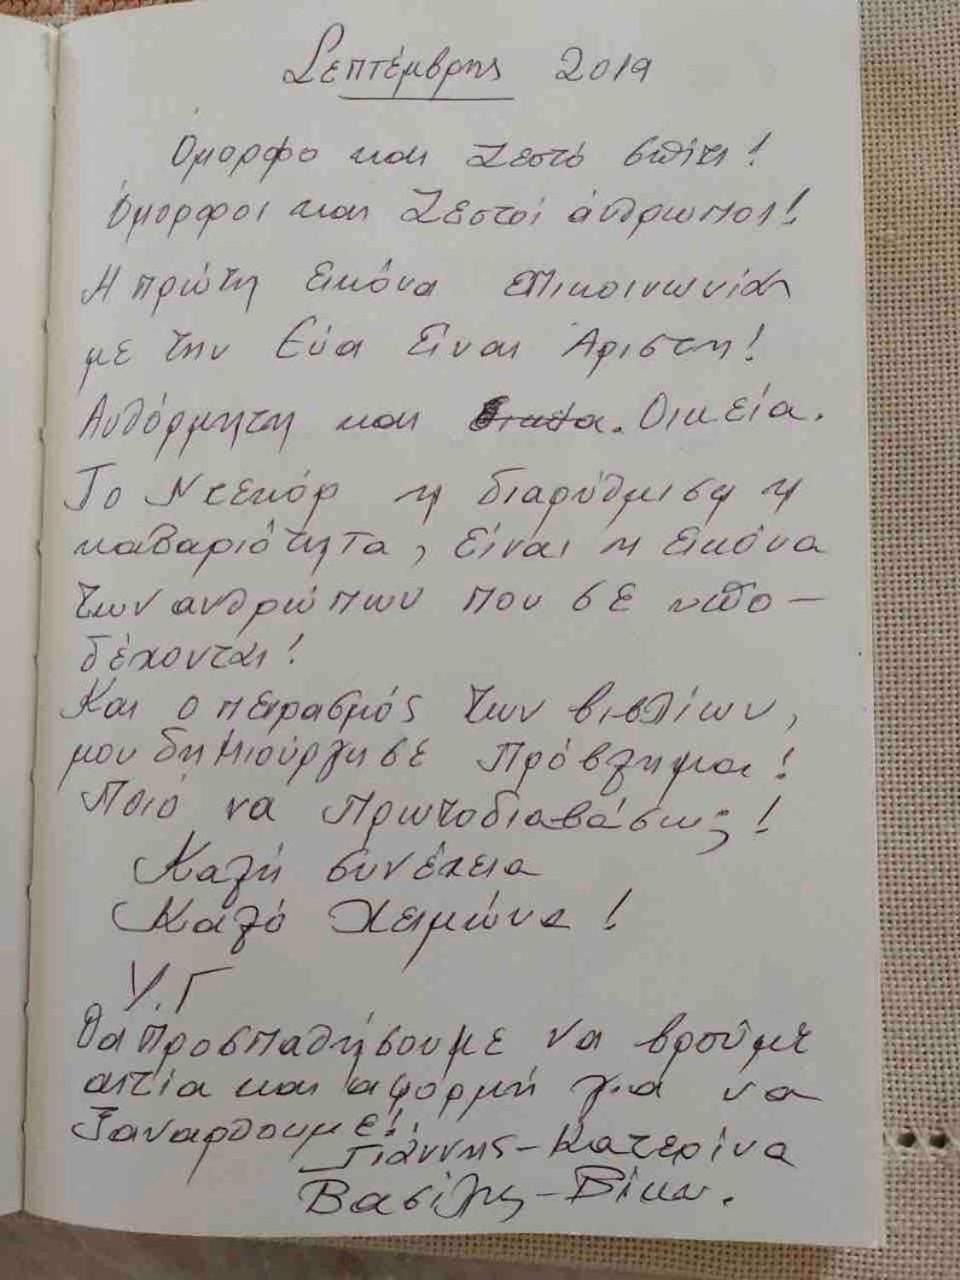 Σεπτέμβρης 2019
Όμορφο και Ζεστό σπίτι!
Όμορφοι και Ζεστοί άνθρωποι!
Η πρώτη εικόνα επικοινωνία
με την Εύα είναι Άριστη!
Αυθόρμητη και . Οικεία.
Το Ντεκόρ η διαρύθμιση η
καθαριότητα, είναι η εικόνα
των ανθρώπων που σε υπο-
δέχονται!
Και ο πειρασμός των βιβλίων,
μου δημιούργησε πρόβλημα!
Ποιό να πρωτοδιαβάσω;!
Καλή συνέχεια
Καλό Χειμώνα!
Υ.Γ
Θα προσπαθήσουμε να βρούμε
αιτία και αφορμή για να
ξαναρθουμε!!
Γιάννης - Κατερίνα
Βασίλης - Βίκυ.